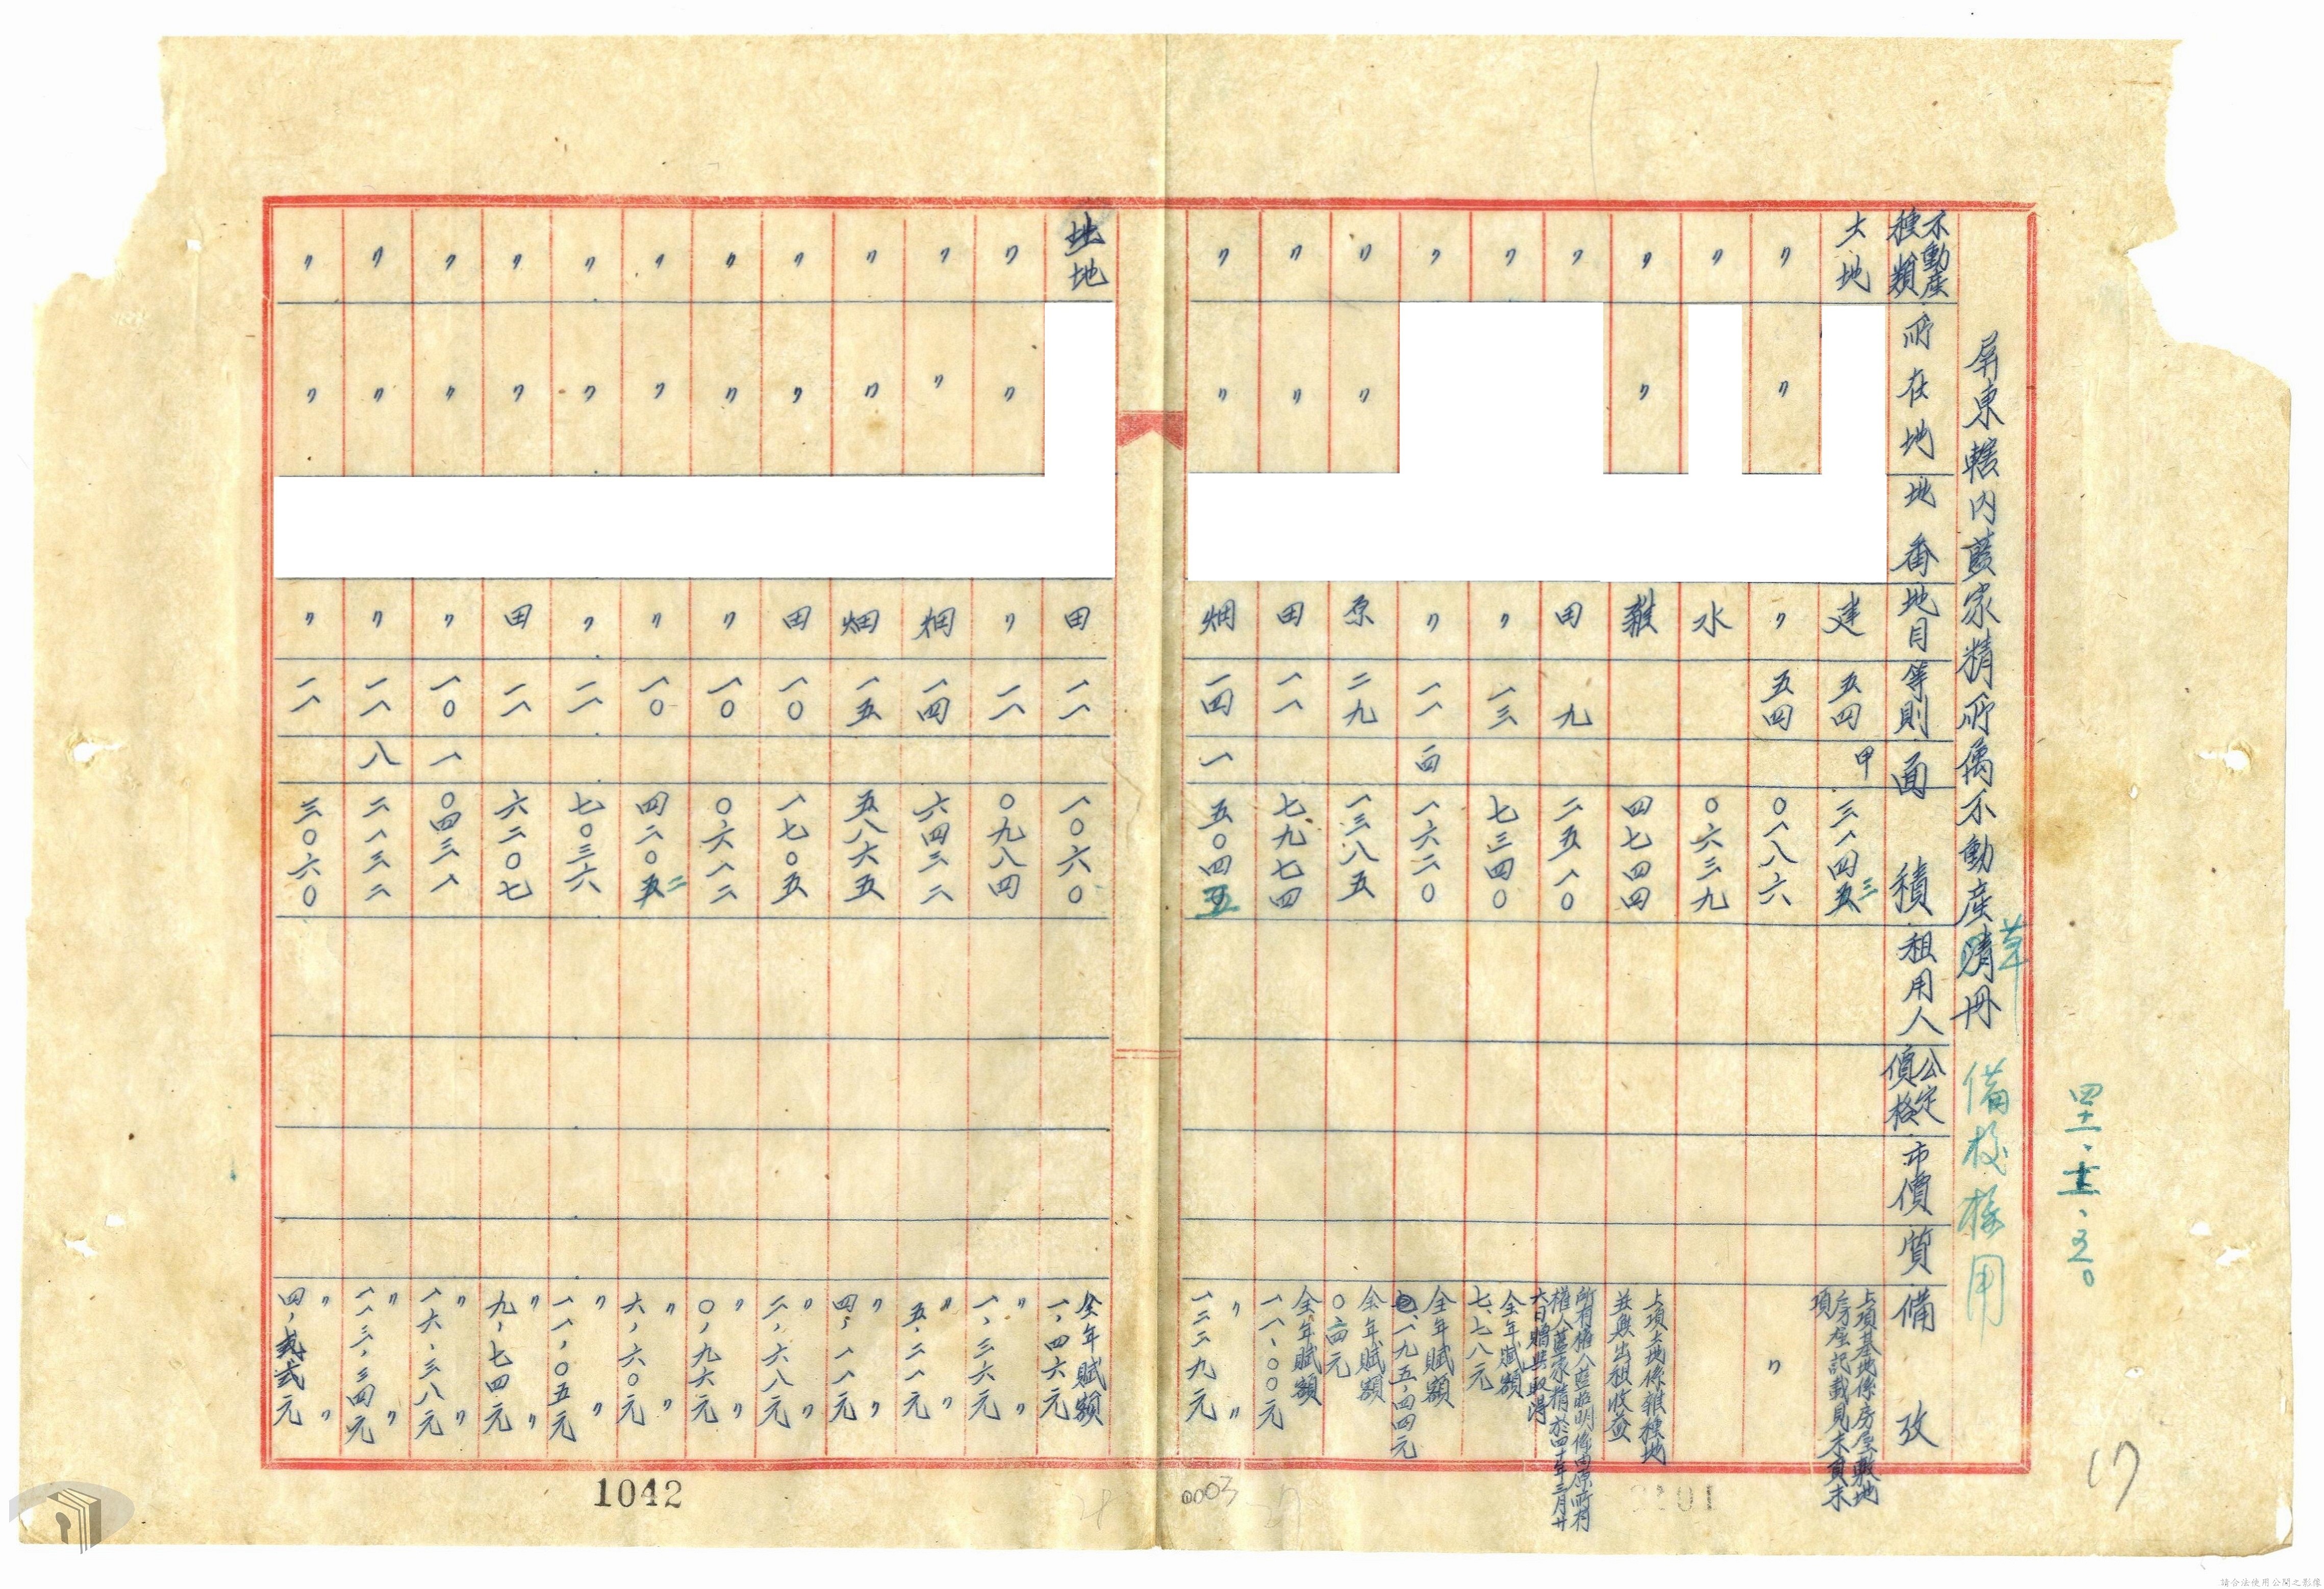 四十一.十二.五.
屏東轄内藍家精所属不動産清冊
草
備核採用
不動産種類
所在地
地番
地目
等則
面積
租用人
公定價格
市價
質
備攷
土地
建
五四
甲
三一四五
三
上項基地係房屋敷地房屋記載見末頁末項
〃
〃
〃
五四
〇一八六
〃
〃
水
〇六三九
〃
〃
雜
四七四四
上項土地係雜種地並無出租收益
〃
田
九
二五一〇
〃
〃
一三
七三四〇
全年賦額
七、七八元
〃
〃
一一
四
一六二〇
全年賦額
一九五、四四元
〃
〃
原
二九
一三八五
全年賦額
〃
〃
田
一一
七九七四
全年賦額
一一、〇〇元
〃
〃
畑
一四
一
五〇四五
〃
〃
土地
田
一一
一〇六〇
全年賦額
一、四六元
〃
〃
〃
一一
〇九八四
〃
〃
一、三六元
〃
〃
畑
一四
六四三二
〃
〃
五、二一元
〃
〃
畑
一五
五八六五
〃
〃
四、一一元
〃
〃
田
一〇
一七〇五
〃
〃
二、六八元
〃
〃
〃
一〇
〇六一二
〃
〃
〇、九六元
〃
〃
〃
一〇
四二〇五
二
〃
〃
六、六〇元
〃
〃
〃
一一
七〇三六
〃
〃
一一、〇五元
〃
〃
田
一一
六二〇七
〃
〃
九、七四元
〃
〃
〃
一〇
一
〇四三一
〃
〃
一六、三八元
〃
〃
〃
一一
八
二一三二
〃
〃
一一三、三四元
〃
〃
〃
一一
三〇六〇
〃
〃
1042
0003
17
請合法使用公開之影像